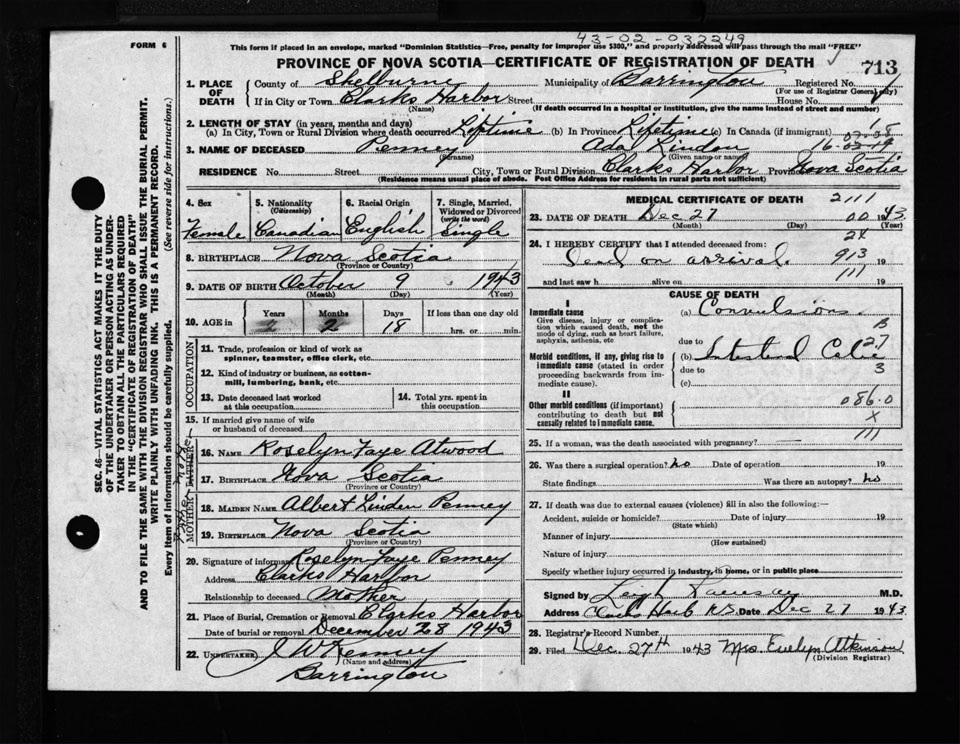 43-02-032249
FORM 6
This form if placed in an envelope, marked "Dominion Statistics—Free, penalty for improper use $300," and properly addressed will pass through the mail "FREE"
PROVINCE OF NOVA SCOTIA—CERTIFICATE OF REGISTRATION OF DEATH
713
1. PLACE OF DEATH County of Shelburne Municipality of Barrington Registered No.
(For use of Registrar General only)
If in City or Town Clarks Harbor Street House No.
(Name) (If death occurred in a hospital or institution, give the name instead of street and number)
2. LENGTH OF STAY (in years, months and days)
(a) In City, Town or Rural Division where death occurred Lifetime (b) in Province Lifetime (c) In Canada (if immigrant)
3. NAME OF DECEASED Penney Ada Linden 16-02-19
(Surname) (Given name or names)
RESIDENCE No. Street City, Town or Rural Division Clarks Harbor Province Nova Scotia
(Residence means usual place of abode. Post Office Address for residents in rural parts not sufficient)
4. Sex 5. Nationality (Citizenship) 6. Racial Origin 7. Single, Married, Widowed or Divorced (write the word)
Female Canadian English Single
8. BIRTHPLACE Nova Scotia
(Province or Country)
9. DATE OF BIRTH October 9 1943
(Month) (Day) (Year)
10. AGE in Years Months Days If less than one day old
2 18 hrs. or min.
OCCUPATION
11. Trade, profession or kind of work as spinner, teamster, office clerk, etc.
12. Kind of industry or business, as cotton-mill, lumbering, bank, etc.
13. Date deceased last worked at this occupation
14. Total yrs. spent in this occupation
15. If married give name of wife or husband of deceased
FATHER
16. NAME Roselyn Faye Atwood
17. BIRTHPLACE Nova Scotia
(Province or Country)
MOTHER
18. MAIDEN NAME Albert Linden Penney
19. BIRTHPLACE Nova Scotia
(Province or Country)
20. Signature of informant Roselyn Faye Penney
Address Clarks Harbor
Relationship to deceased Mother
21. Place of Burial, Cremation or Removal Clarks Harbor
Date of burial or removal December 28 1943
22. UNDERTAKER J W Kenney
(Name and address)
Barrington
MEDICAL CERTIFICATE OF DEATH 2111
23. DATE OF DEATH Dec 27 00 1943
(Month) (Day) (Year)
24
24. I HEREBY CERTIFY that I attended deceased from:
Dead on arrival. 913 19
and last saw h alive on 111 19
CAUSE OF DEATH
I
Immediate cause
Give disease, injury or complication which caused death, not the mode of dying, such as heart failure, asphyxia, asthenia, etc
(a) Convulsions.
B
due to
Morbid conditions, if any, giving rise to immediate cause (stated in order proceeding backwards from immediate cause).
27
(b) Intestinal Colic
due to 3
(c)
II
Other morbid conditions (if important) contributing to death but not causally related to immediate cause.
086.0
X
111
25. If a woman, was the death associated with pregnancy?
26. Was there a surgical operation? no Date of operation 19
State findings Was there an autopsy? no
27. If death was due to external causes (violence) fill in also the following:—
Accident, suicide or homicide? Date of injury 19
(State which)
Manner of injury
(How sustained)
Nature of injury
Specify whether injury occurred in industry, in home, or in public place
Signed by Leigh M.D.
Address Clarks Harb N.S. Date Dec 27 1943
28. Registrar's Record Number
29. Filed Dec. 27th 1943 Mrs. Evelyn Atkinson
(Division Registrar)
SEC. 46—VITAL STATISTICS ACT MAKES IT THE DUTY
OF THE UNDERTAKER OR PERSON ACTING AS UNDERTAKER TO OBTAIN ALL THE PARTICULARS REQUIRED
IN THE "CERTIFICATE OF REGISTRATION OF DEATH"
AND TO FILE THE SAME WITH THE DIVISION REGISTRAR WHO SHALL ISSUE THE BURIAL PERMIT.
WRITE PLAINLY WITH UNFADING INK. THIS IS A PERMANENT RECORD.
Every item of information should be carefully supplied. (See reverse side for instructions.)